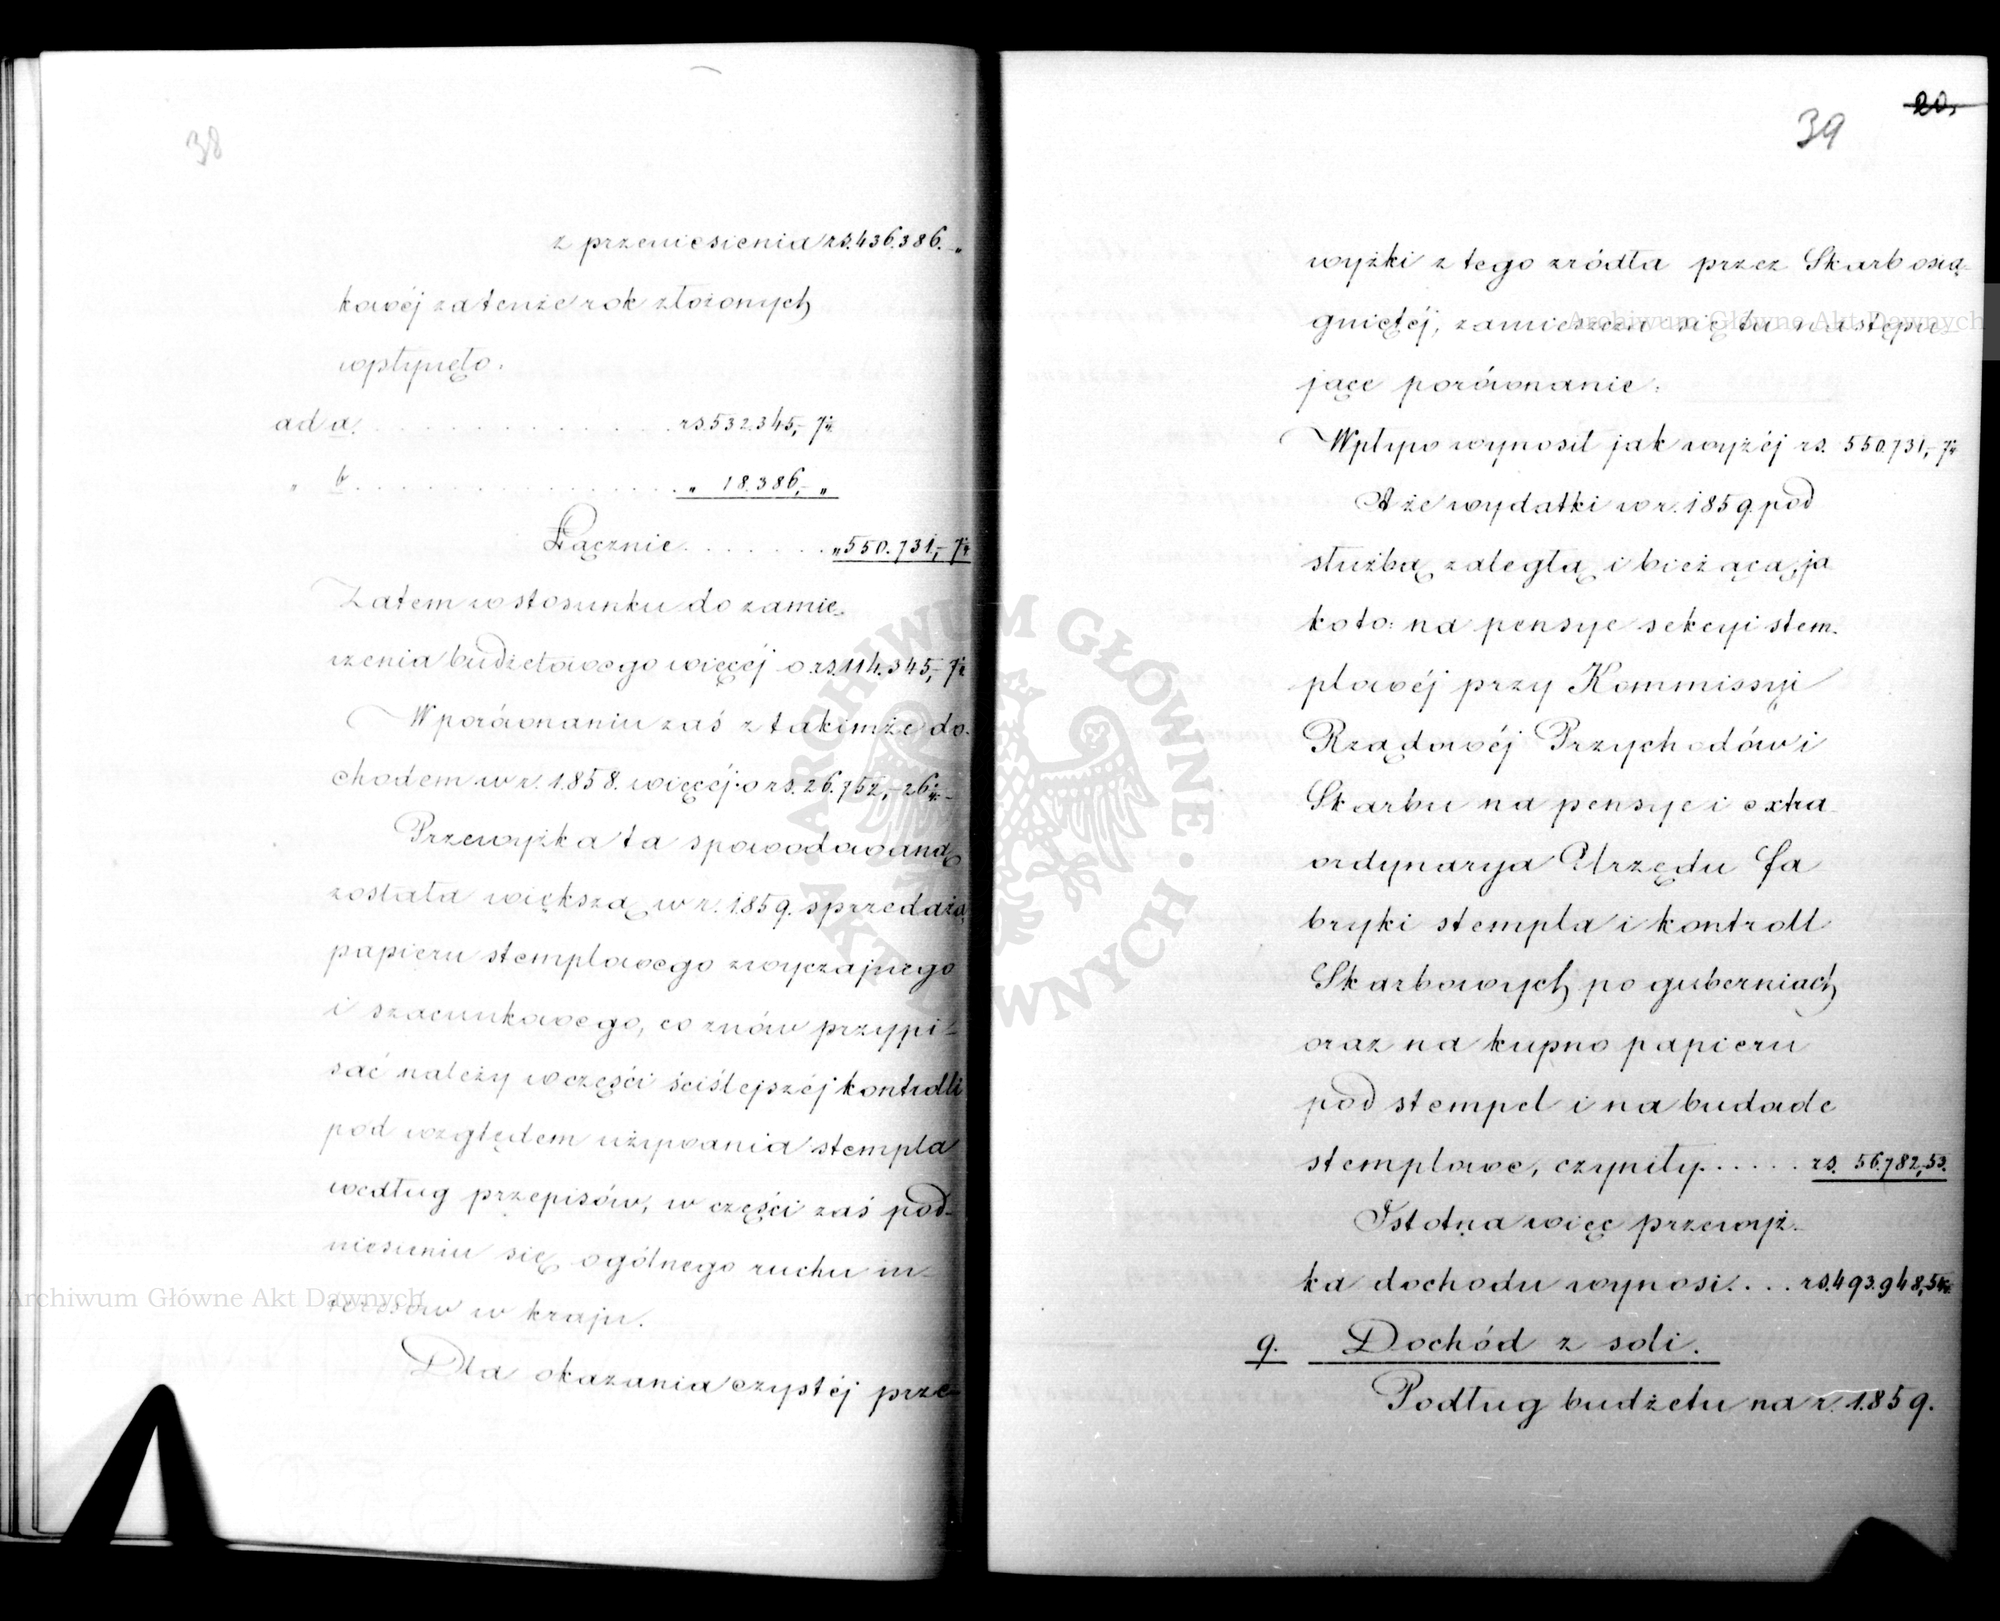 38
z przeniesienia rs. 436.386. „
kowéj za tenże rok złożonych
wpłynęło.
ad a. . . . . . . . . . . . . . . rs. 532.345,- 7½
„ b. . . . . . . . . . . . . . . . „ 18.386,- „
Łącznie . . . . . . . „ 550.731,- 7½
Zatem w stosunku do zamie-
rzenia budżetowego więcéj o rs. 114.345,- 7½
W porównaniu zaś z takimże do-
chodem w r. 1858. więcéj o rs. 26.752,- 26
Przewyżka ta spowodowaną
została większą w r. 1859. sprzedażą
papieru stemplowego zwyczajnego
i szacunkowego, co znów przypi-
sać należy w części ściślejszéj kontrolli
pod względem używania stempla
według przepisów, w części zaś pod-
niesieniu się ogólnego ruchu in-
teresów w kraju.
Dla okazania czystéj prze-
20.
39
wyżki z tego źródła przez Skarb osią-
gniętéj, zamieszcza się tu następu-
jące porównanie:
Wpływ wynosił jak wyżéj rs. 550.731,- 7½
A że wydatki w r. 1859. pod
służbą zaległą i bieżącą, ja
koto: na pensye sekcyi stem-
plowéj przy Kommissyi
Rządowéj Przychodów i
Skarbu na pensye i extra-
ordynarya Urzędu fa
bryki stempla i kontroll
Skarbowych po guberniach
oraz na kupno papieru
pod stempel i na budade
stemplowe, czyniły . . . . . rs. 56.782,53.
Istotna więc przewyż-
ka dochodu wynosi . . . rs. 493.948,54½
9. Dochód z soli.
Podług budżetu na r. 1859.
Archiwum Główne Akt Dawnych
Archiwum Główne Akt Dawnych
ARCHIWUM GŁÓWNE · AKT DAWNYCH ·